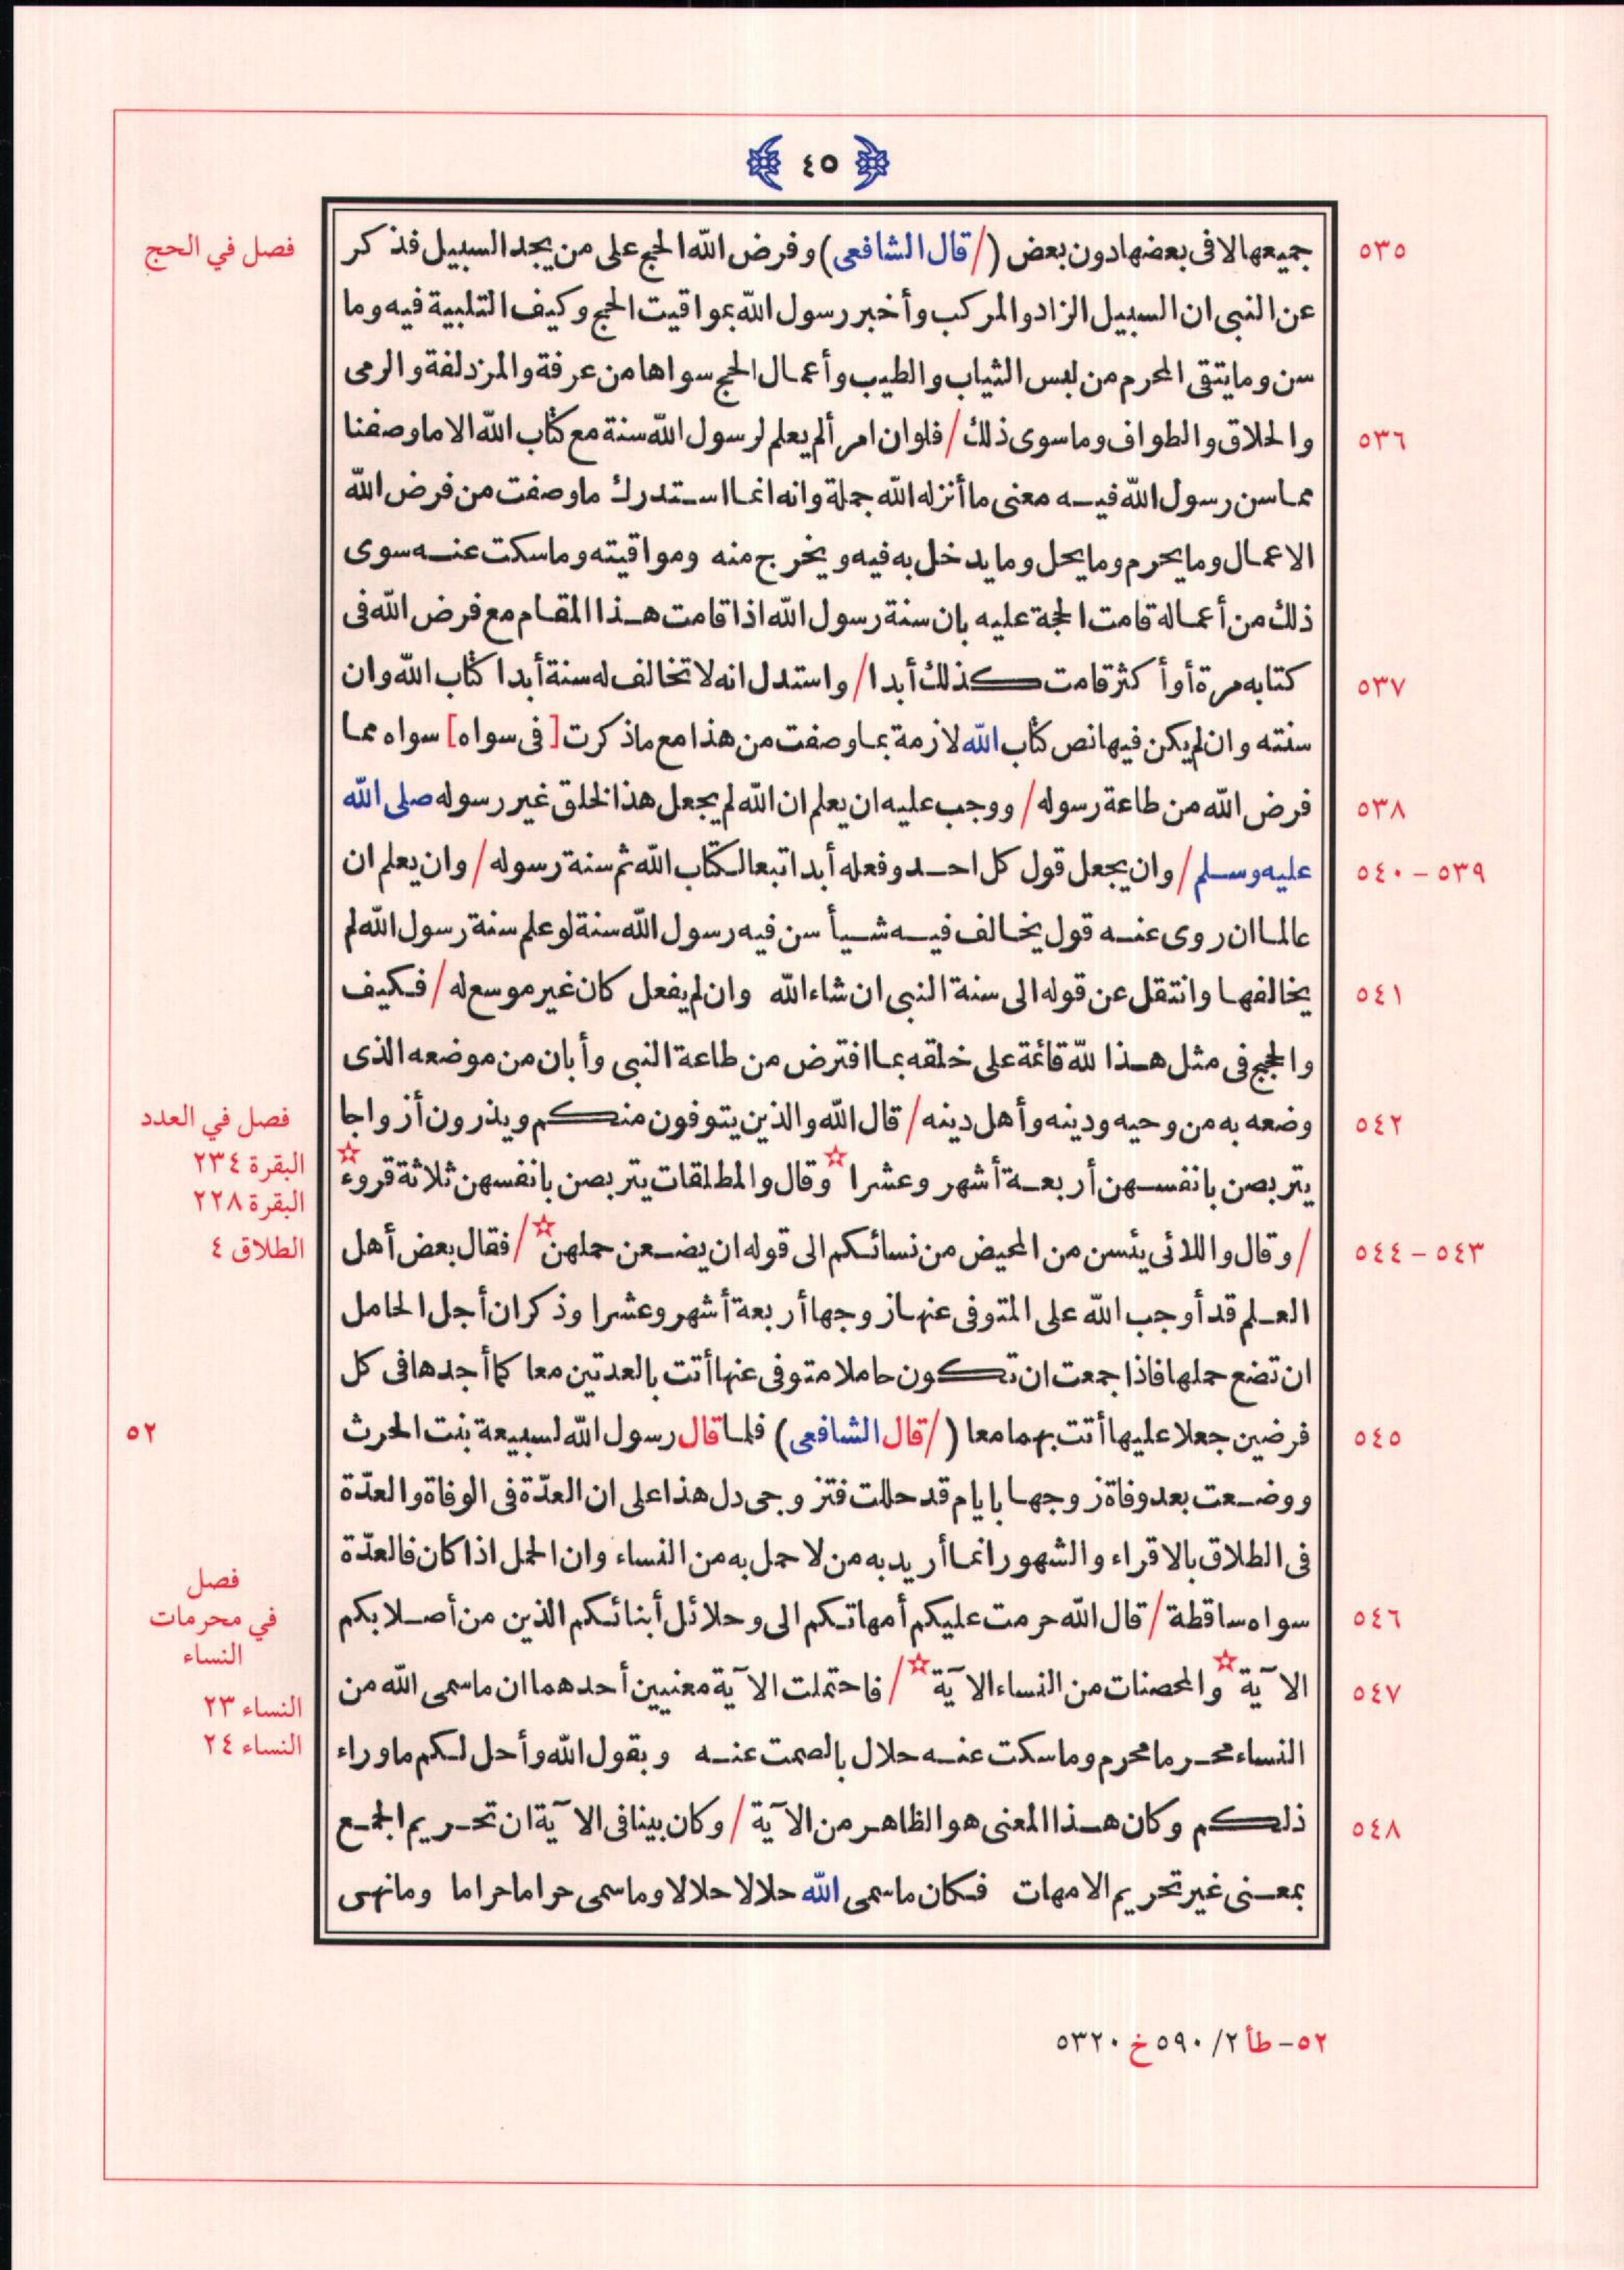 ٤٥
٥٣٥
جميعها لا فى بعضها دون بعض (/ قال الشافعى) وفرض الله الحج على من يجد السبيل فذكر
فصل في الحج
عن النبى ان السبيل الزاد والمركب وأخبر رسول الله بمواقيت الحج وكيف التلبية فيه وما
سن وما يتقى المحرم من لبس الثياب والطيب وأعمال الحج سواها من عرفة والمزدلفة والرمى
٥٣٦
والحلاق والطواف وما سوى ذلك / فلو ان امرألم يعلم لرسول الله سنة مع كتاب الله الا ما وصفنا
مما سن رسول الله فيه معنى ما أنزله الله جملة وانه انما استدرك ما وصفت من فرض الله
الاعمال وما يحرم وما يحل وما يدخل به فيه ويخرج منه ومواقيته وما سكت عنه سوى
ذلك من أعماله قامت الحجة عليه بان سنة رسول الله اذا قامت هذا المقام مع فرض الله فى
٥٣٧
كتابه مرة أو أكثر قامت كذلك أبدا / واستدل انه لا تخالف له سنة أبدا كتاب الله وان
سنته وان لم يكن فيها نص كتاب الله لازمة بما وصفت من هذا مع ما ذكرت [فى سواه] سواه مما
٥٣٨
فرض الله من طاعة رسوله / ووجب عليه ان يعلم ان الله لم يجعل هذا لخلق غير رسوله صلى الله
٥٣٩ – ٥٤٠
عليه وسلم / وان يجعل قول كل احد وفعله أبدا تبعا لكتاب الله ثم سنة رسوله / وان يعلم ان
عالما ان روى عنه قول يخالف فيه شيأ سن فيه رسول الله سنة لو علم سنة رسول الله لم
٥٤١
يخالفها وانتقل عن قوله الى سنة النبى ان شاء الله وان لم يفعل كان غير موسع له / فكيف
والحجج فى مثل هذا لله قائمة على خلقه بما افترض من طاعة النبى وأبان من موضعه الذى
٥٤٢
وضعه به من وحيه ودينه وأهل دينه / قال الله والذين يتوفون منكم ويذرون أزواجا
فصل في العدد
يتربصن بانفسهن أربعة أشهر وعشرا ☆ وقال والمطلقات يتربصن بانفسهن ثلاثة قروء ☆
البقرة ٢٣٤
البقرة ٢٢٨
٥٤٣ – ٥٤٤
/ وقال واللائى يئسن من المحيض من نسائكم الى قوله ان يضعن حملهن ☆ / فقال بعض أهل
الطلاق ٤
العلم قد أوجب الله على المتوفى عنها زوجها أربعة أشهر وعشرا وذكر ان أجل الحامل
ان تضع حملها فاذا جمعت ان تكون حاملا متوفى عنها أتت بالعدتين معا كما أجدها فى كل
٥٤٥
فرضين جعلا عليها أتت بهما معا (/ قال الشافعى) فلما قال رسول الله لسبيعة بنت الحرث
٥٢
ووضعت بعد وفاة زوجها بايام قد حللت فتزوجى دل هذا على ان العدّة فى الوفاة والعدّة
فى الطلاق بالاقراء والشهور انما أريد به من لا حمل به من النساء وان الحمل اذا كان فالعدّة
٥٤٦
سواه ساقطة / قال الله حرمت عليكم أمهاتكم الى وحلائل أبنائكم الذين من أصلابكم
فصل
في محرمات
النساء
٥٤٧
الآية ☆ والمحصنات من النساء الآية ☆ / فاحتملت الآية معنيين أحدهما ان ما سمى الله من
النساء ٢٣
النساء محرما محرم وما سكت عنه حلال بالصمت عنه وبقول الله وأحل لكم ما وراء
النساء ٢٤
٥٤٨
ذلكم وكان هذا المعنى هو الظاهر من الآية / وكان بينا فى الآية ان تحريم الجمع
بمعنى غير تحريم الامهات فكان ما سمى الله حلالا حلالا وما سمى حراما حراما وما نهى
٥٢ – طأ ٢/ ٥٩٠ خ ٥٣٢٠